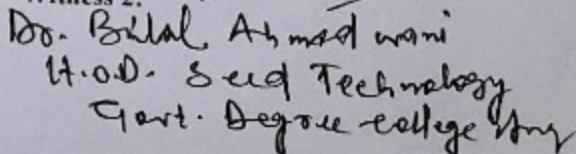 Dr. Bilal Ahmad wani
H.O.D. Seed Technology
Govt. Degree college